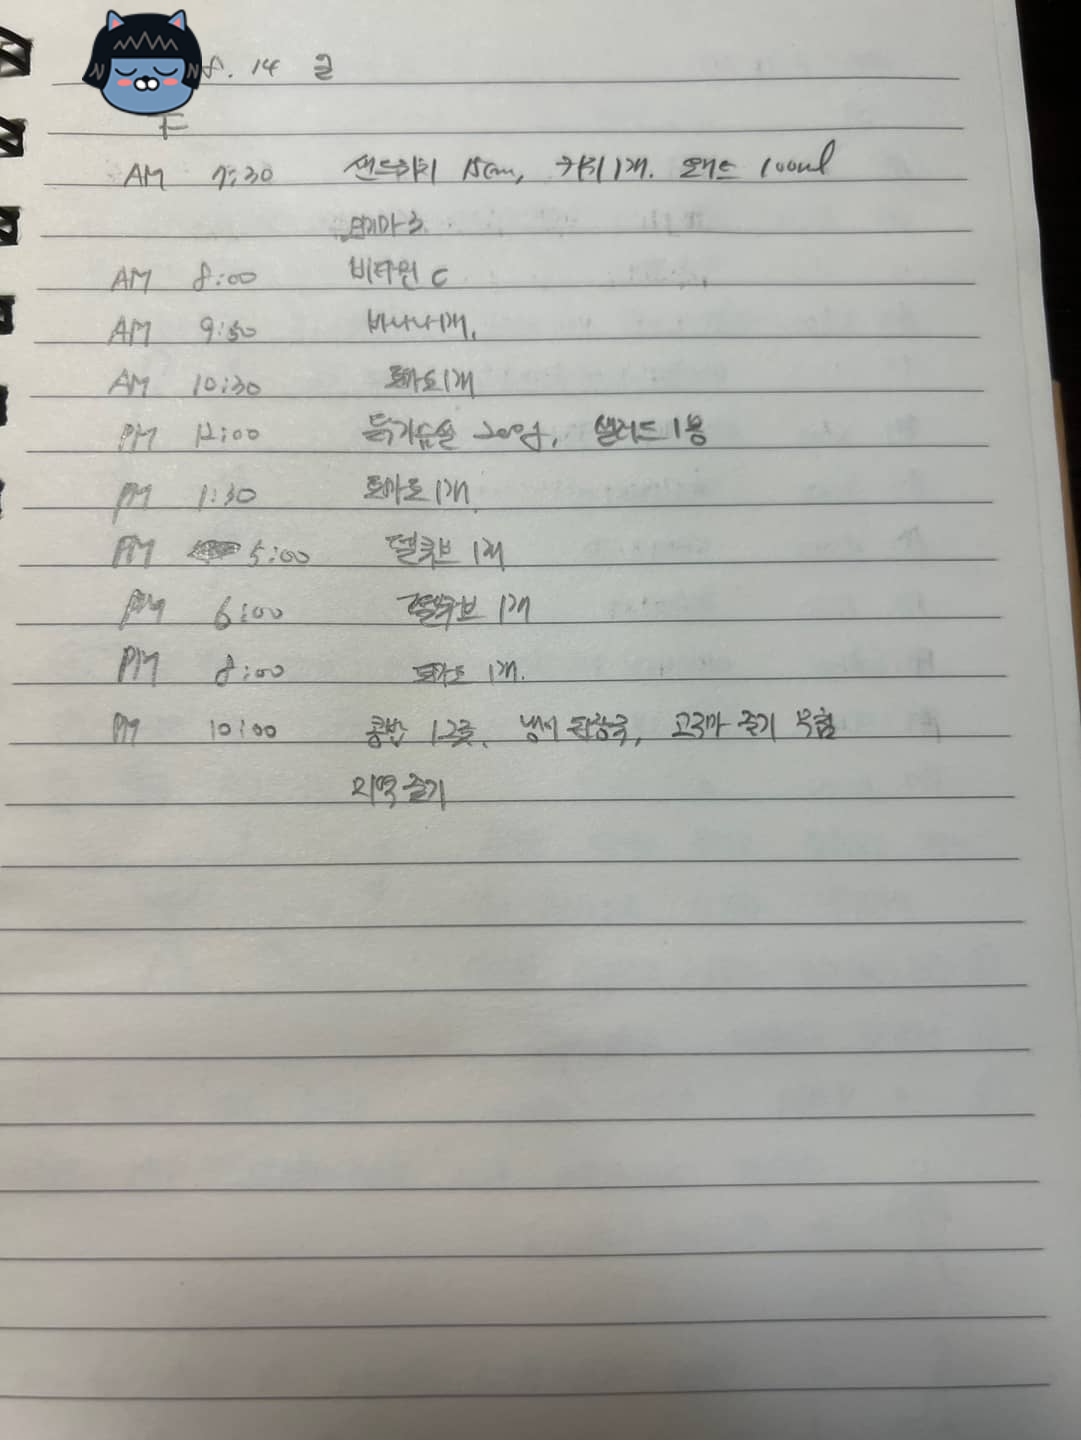 8. 14 글
F
AM 7:30 샌드위치 15cm, 키위 1개. 오트 100ml
오메가3
AM 8:00 비타민 C
AM 9:30 바나나 1개,
AM 10:30 토마토 1개
PM 12:00 닭가슴살 200g, 샐러드 1봉
PM 1:30 토마토 1개
PM 5:00 큐브 1개
PM 6:00 큐브 1개
PM 8:00 토마토 1개.
PM 10:00 콩밥 , 냉이 된장국, 고구마 줄기 무침
미역 줄기